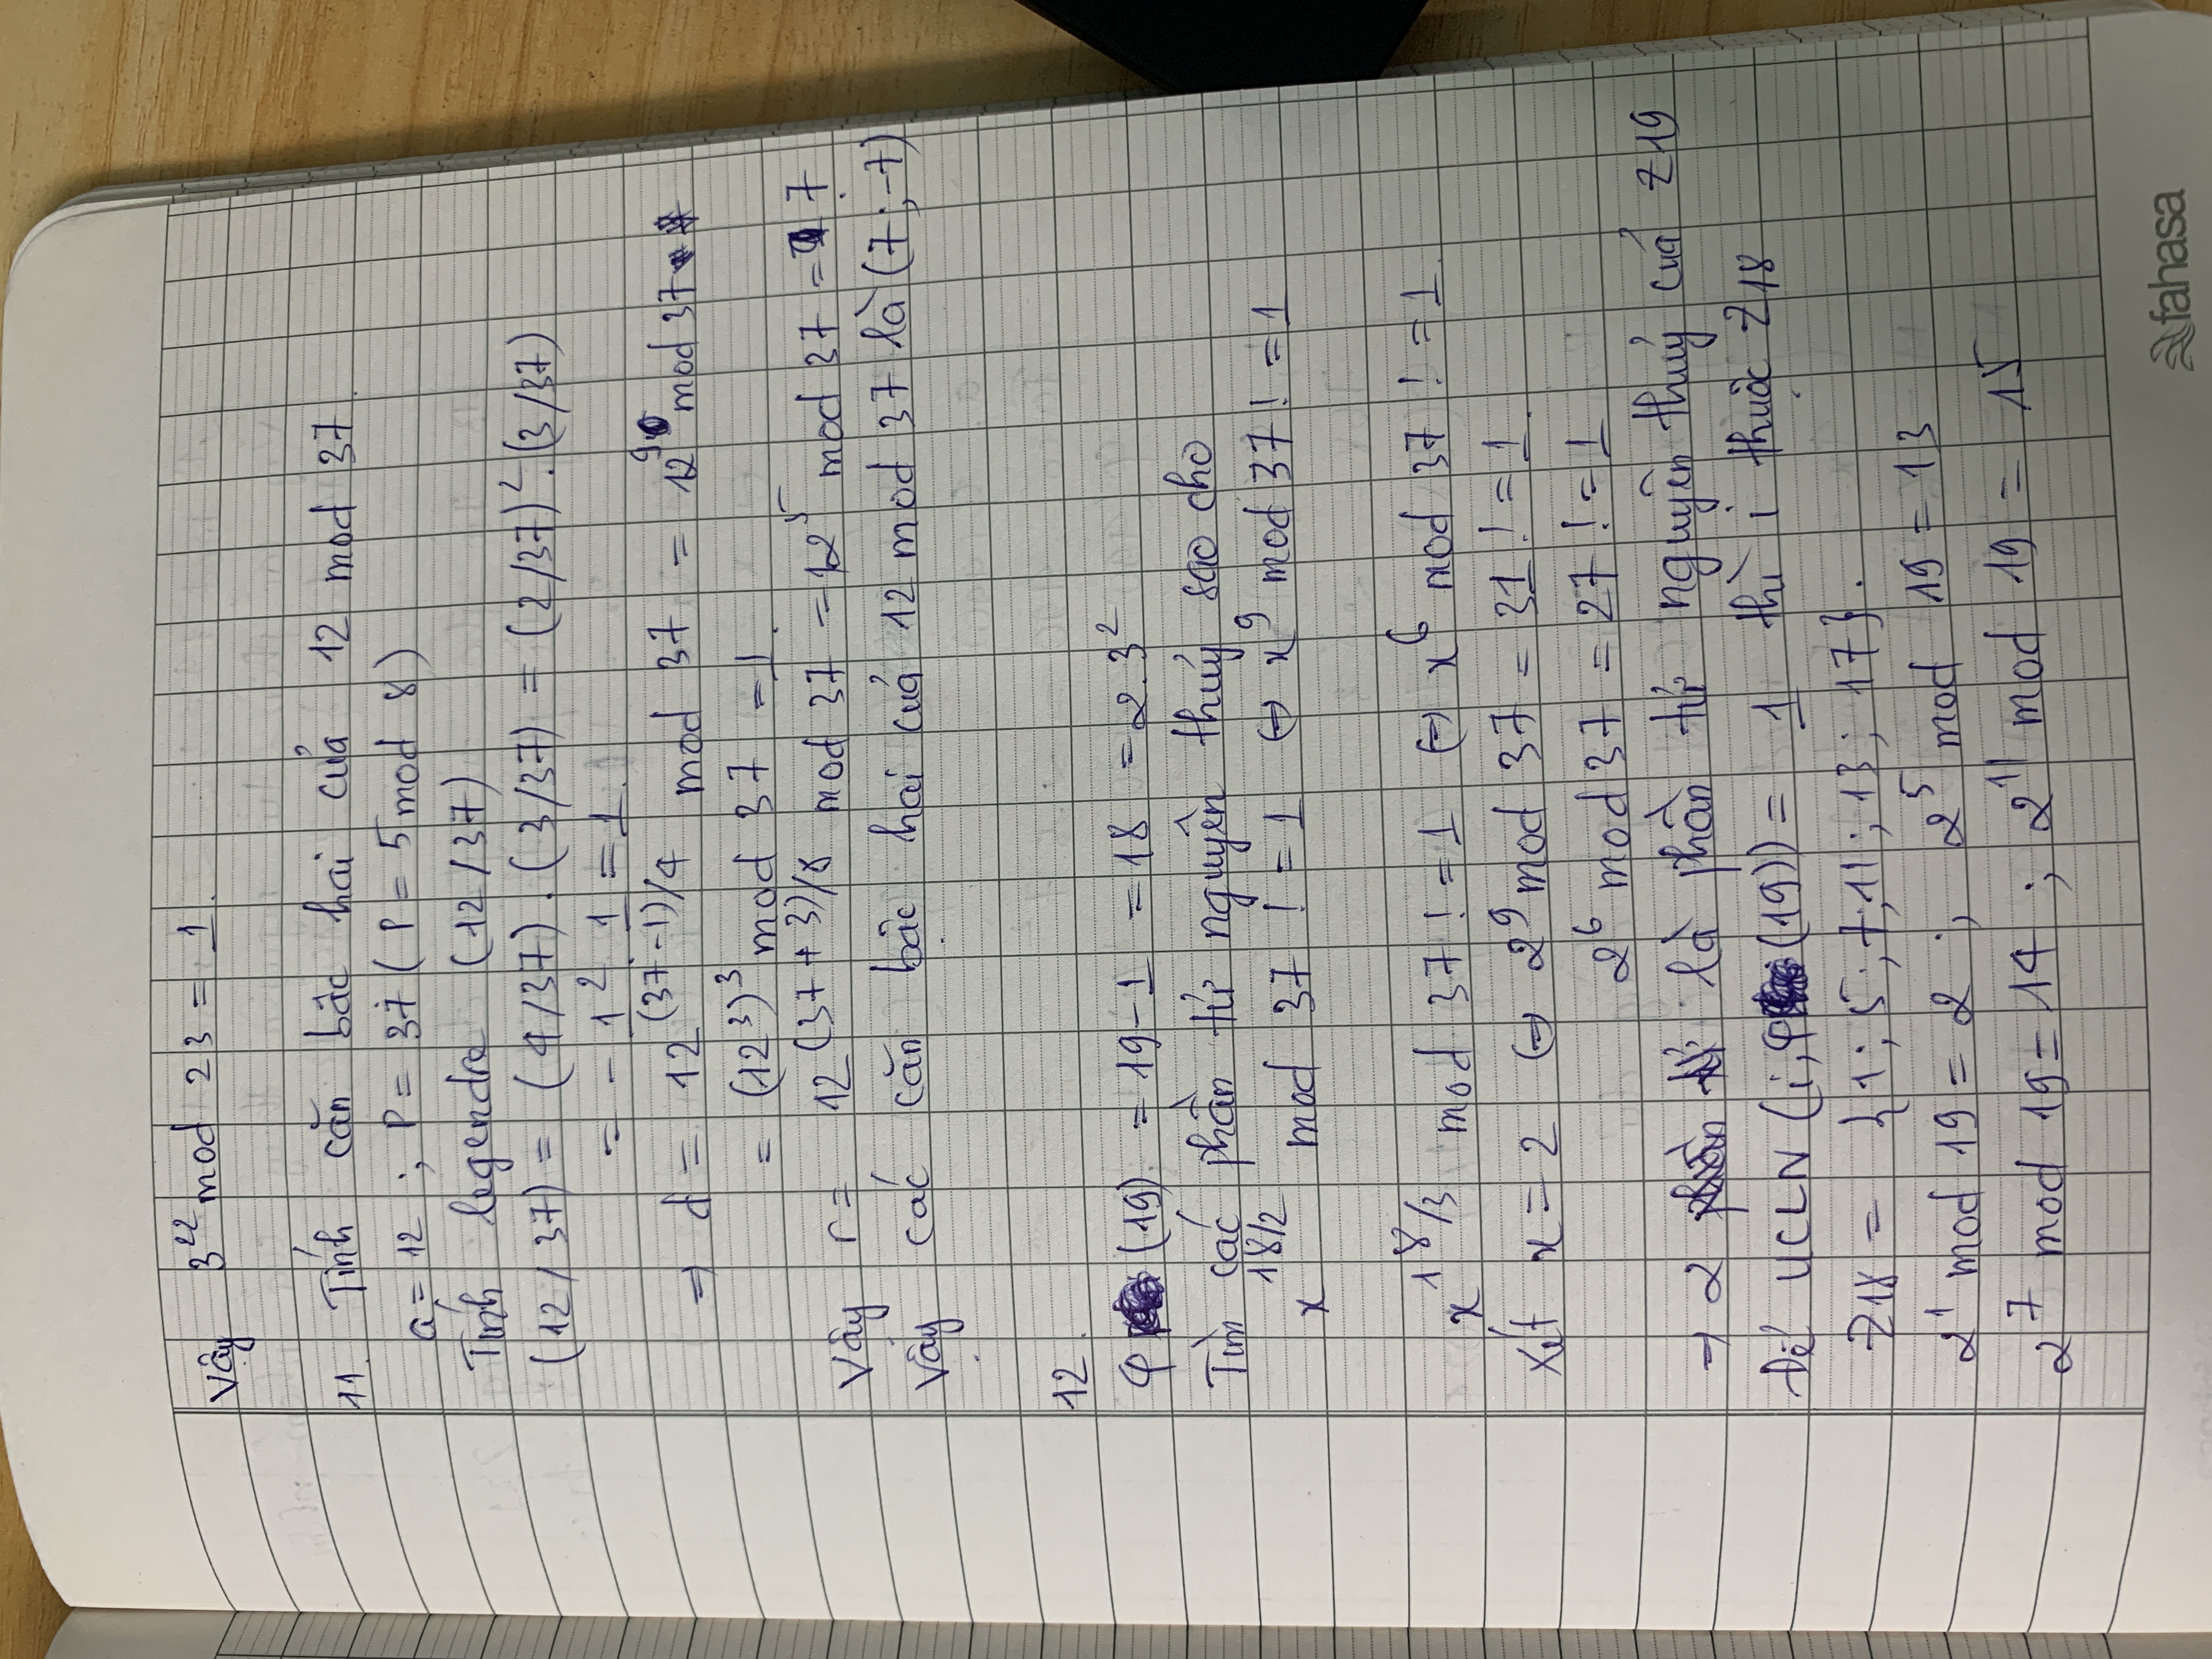 Vậy 3^22 mod 23 = 1.
11. Tính căn bậc hai của 12 mod 37.
a = 12 ; P = 37 ( P = 5 mod 8 )
Tính legendre (12/37)
(12/37) = (4/37) . (3/37) = (2/37)^2 . (3/37)
= -1^2 . 1 = 1.
=> d = 12^(37-1)/4 mod 37 = 12^9 mod 37
= (12^3)^3 mod 37 = 1.
Vậy r = 12^(37+3)/8 mod 37 = 12^5 mod 37 = 7.
Vậy các căn bậc hai của 12 mod 37 là (7; -7)
12.
φ (19) = 19 - 1 = 18 = 2.3^2
Tìm các phần tử nguyên thuỷ sao cho
x^18/2 mod 37 != 1 <=> x^9 mod 37 != 1
x^18/3 mod 37 != 1 <=> x^6 mod 37 != 1.
Xét x = 2 <=> 2^9 mod 37 = 31 != 1.
2^6 mod 37 = 27 != 1
=> 2 là phần tử nguyên thuỷ của Z19
Để UCLN (i, φ (19)) = 1 thì i thuộc Z18
Z18 = {1; 5; 7; 11; 13; 17}.
2^1 mod 19 = 2 ; 2^5 mod 19 = 13
2^7 mod 19 = 14 ; 2^11 mod 19 = 15
fahasa